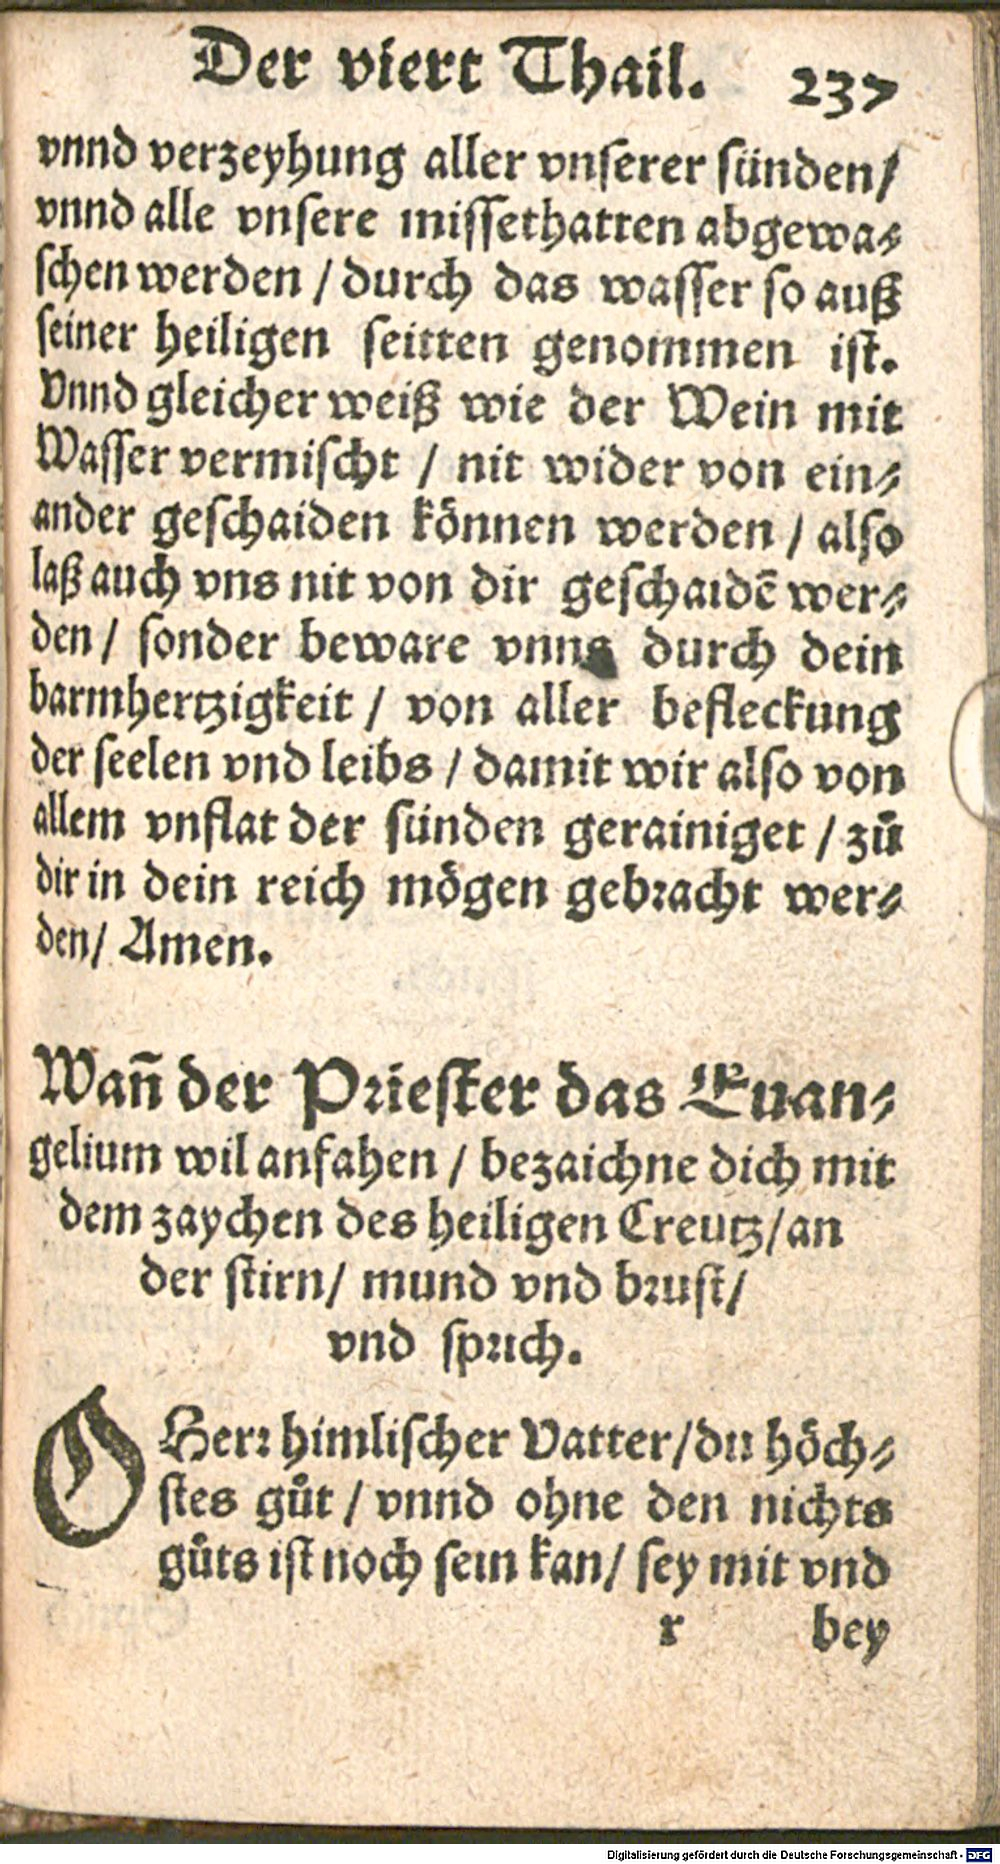 Der viert Thail. 237
vnnd verzeyhung aller vnserer sünden/
vnnd alle vnsere missethatten abgewa⸗
schen werden / durch das wasser so auß
seiner heiligen seitten genommen ist.
Vnnd gleicher weiß wie der Wein mit
Wasser vermischt / nit wider von ein⸗
ander geschaiden können werden / also
laß auch vns nit von dir geschaidē wer⸗
den / sonder beware vnns durch dein
barmhertzigkeit / von aller befleckung
der seelen vnd leibs / damit wir also von
allem vnflat der sünden gerainiget / zů
dir in dein reich mögen gebracht wer⸗
den / Amen.
Wañ der Priester das Euan⸗
gelium wil anfahen / bezaichne dich mit
dem zaychen des heiligen Creutz / an
der stirn / mund vnd brust /
vnd sprich.
O Herr himlischer Vatter / du höch⸗
stes gůt / vnnd ohne den nichts
gůts ist noch sein kan / sey mit vnd
r bey
Digitalisierung gefördert durch die Deutsche Forschungsgemeinschaft - DFG